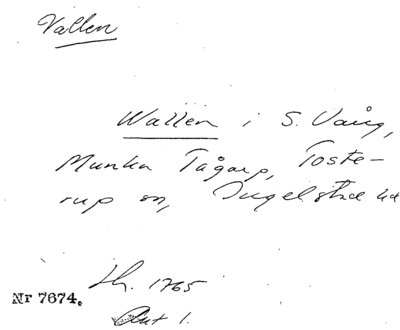 Vallen
Wallen i S. Vång,
Munka Tågarp, Toste-
rup sn, Ingelstad hd
Nr 7674.
1765
Akt 1.